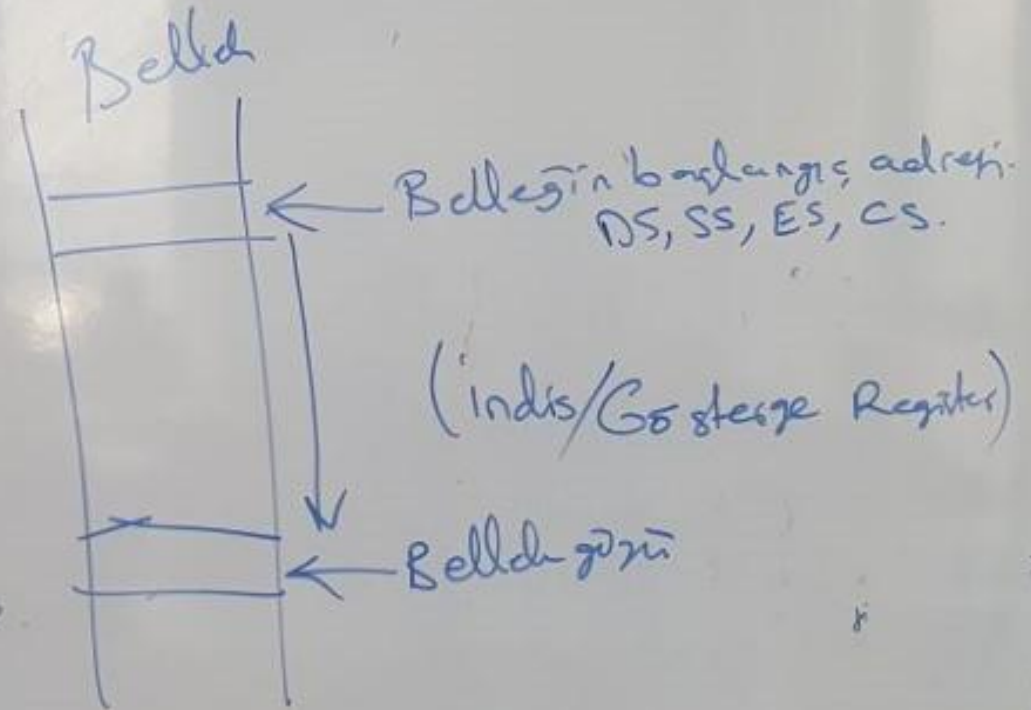 Bellek
Belleğin başlangıç adresi.
DS, SS, ES, CS.
(İndis/Gösterge Register)
Bellek gözü